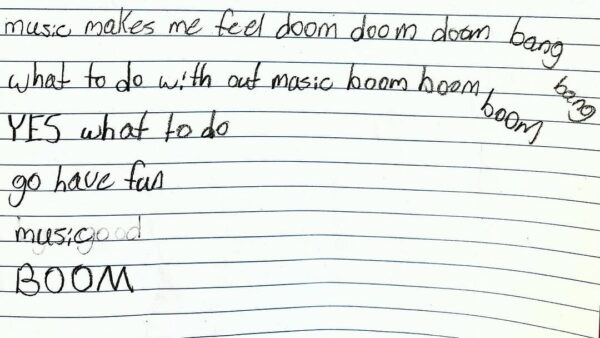 music makes me feel doom doom doom bang
bang
what to do with out music boom boom
boom
YES what to do
go have fun
musicgood
BOOM